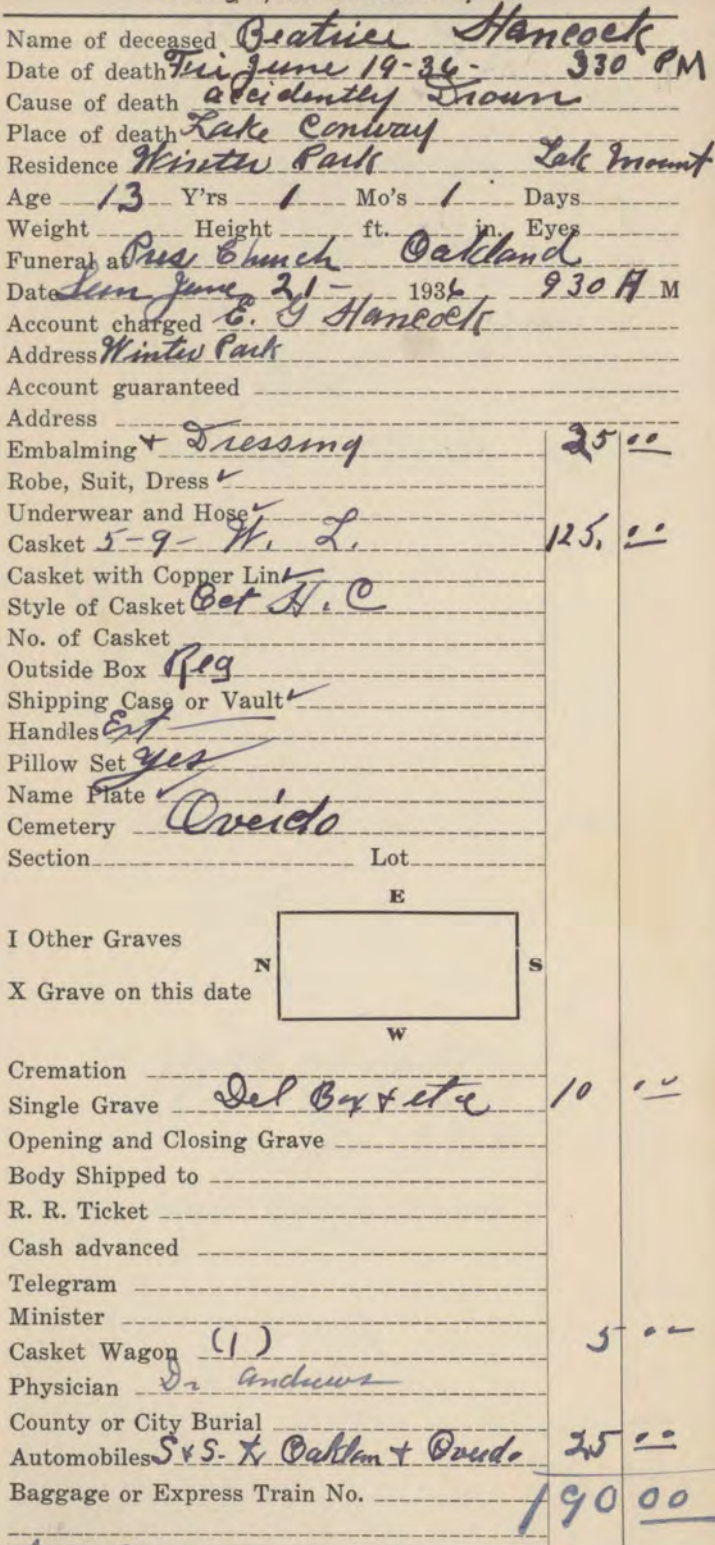 Name of deceased Beatrice Hancock
Date of death Fri June 19-36- 330 PM
Cause of death accidently Drown
Place of death Lake Conway
Residence Winter Park Lak Mount
Age 13 Y'rs 1 Mo's 1 Days
Weight Height ft. in. Eyes
Funeral at Pres Church Oakland
Date Sun June 21- 1936 930 A M
Account charged E. G Hancock
Address Winter Park
Account guaranteed
Address
Embalming + Dressing 25 00
Robe, Suit, Dress ✓
Underwear and Hose ✓
Casket 5-9- W. L. 125. 00
Casket with Copper Lin ✓
Style of Casket Oct H. C
No. of Casket
Outside Box Reg
Shipping Case or Vault ✓
Handles Ext
Pillow Set yes
Name Plate ✓
Cemetery Oveido
Section Lot
E
I Other Graves
N S
X Grave on this date
W
Cremation
Single Grave Del Box + etc 10 00
Opening and Closing Grave
Body Shipped to
R. R. Ticket
Cash advanced
Telegram
Minister
Casket Wagon (1) 5 00
Physician Dr Andrews
County or City Burial
Automobiles S & S- to Oaklan + Oveido 25 00
Baggage or Express Train No. 190 00